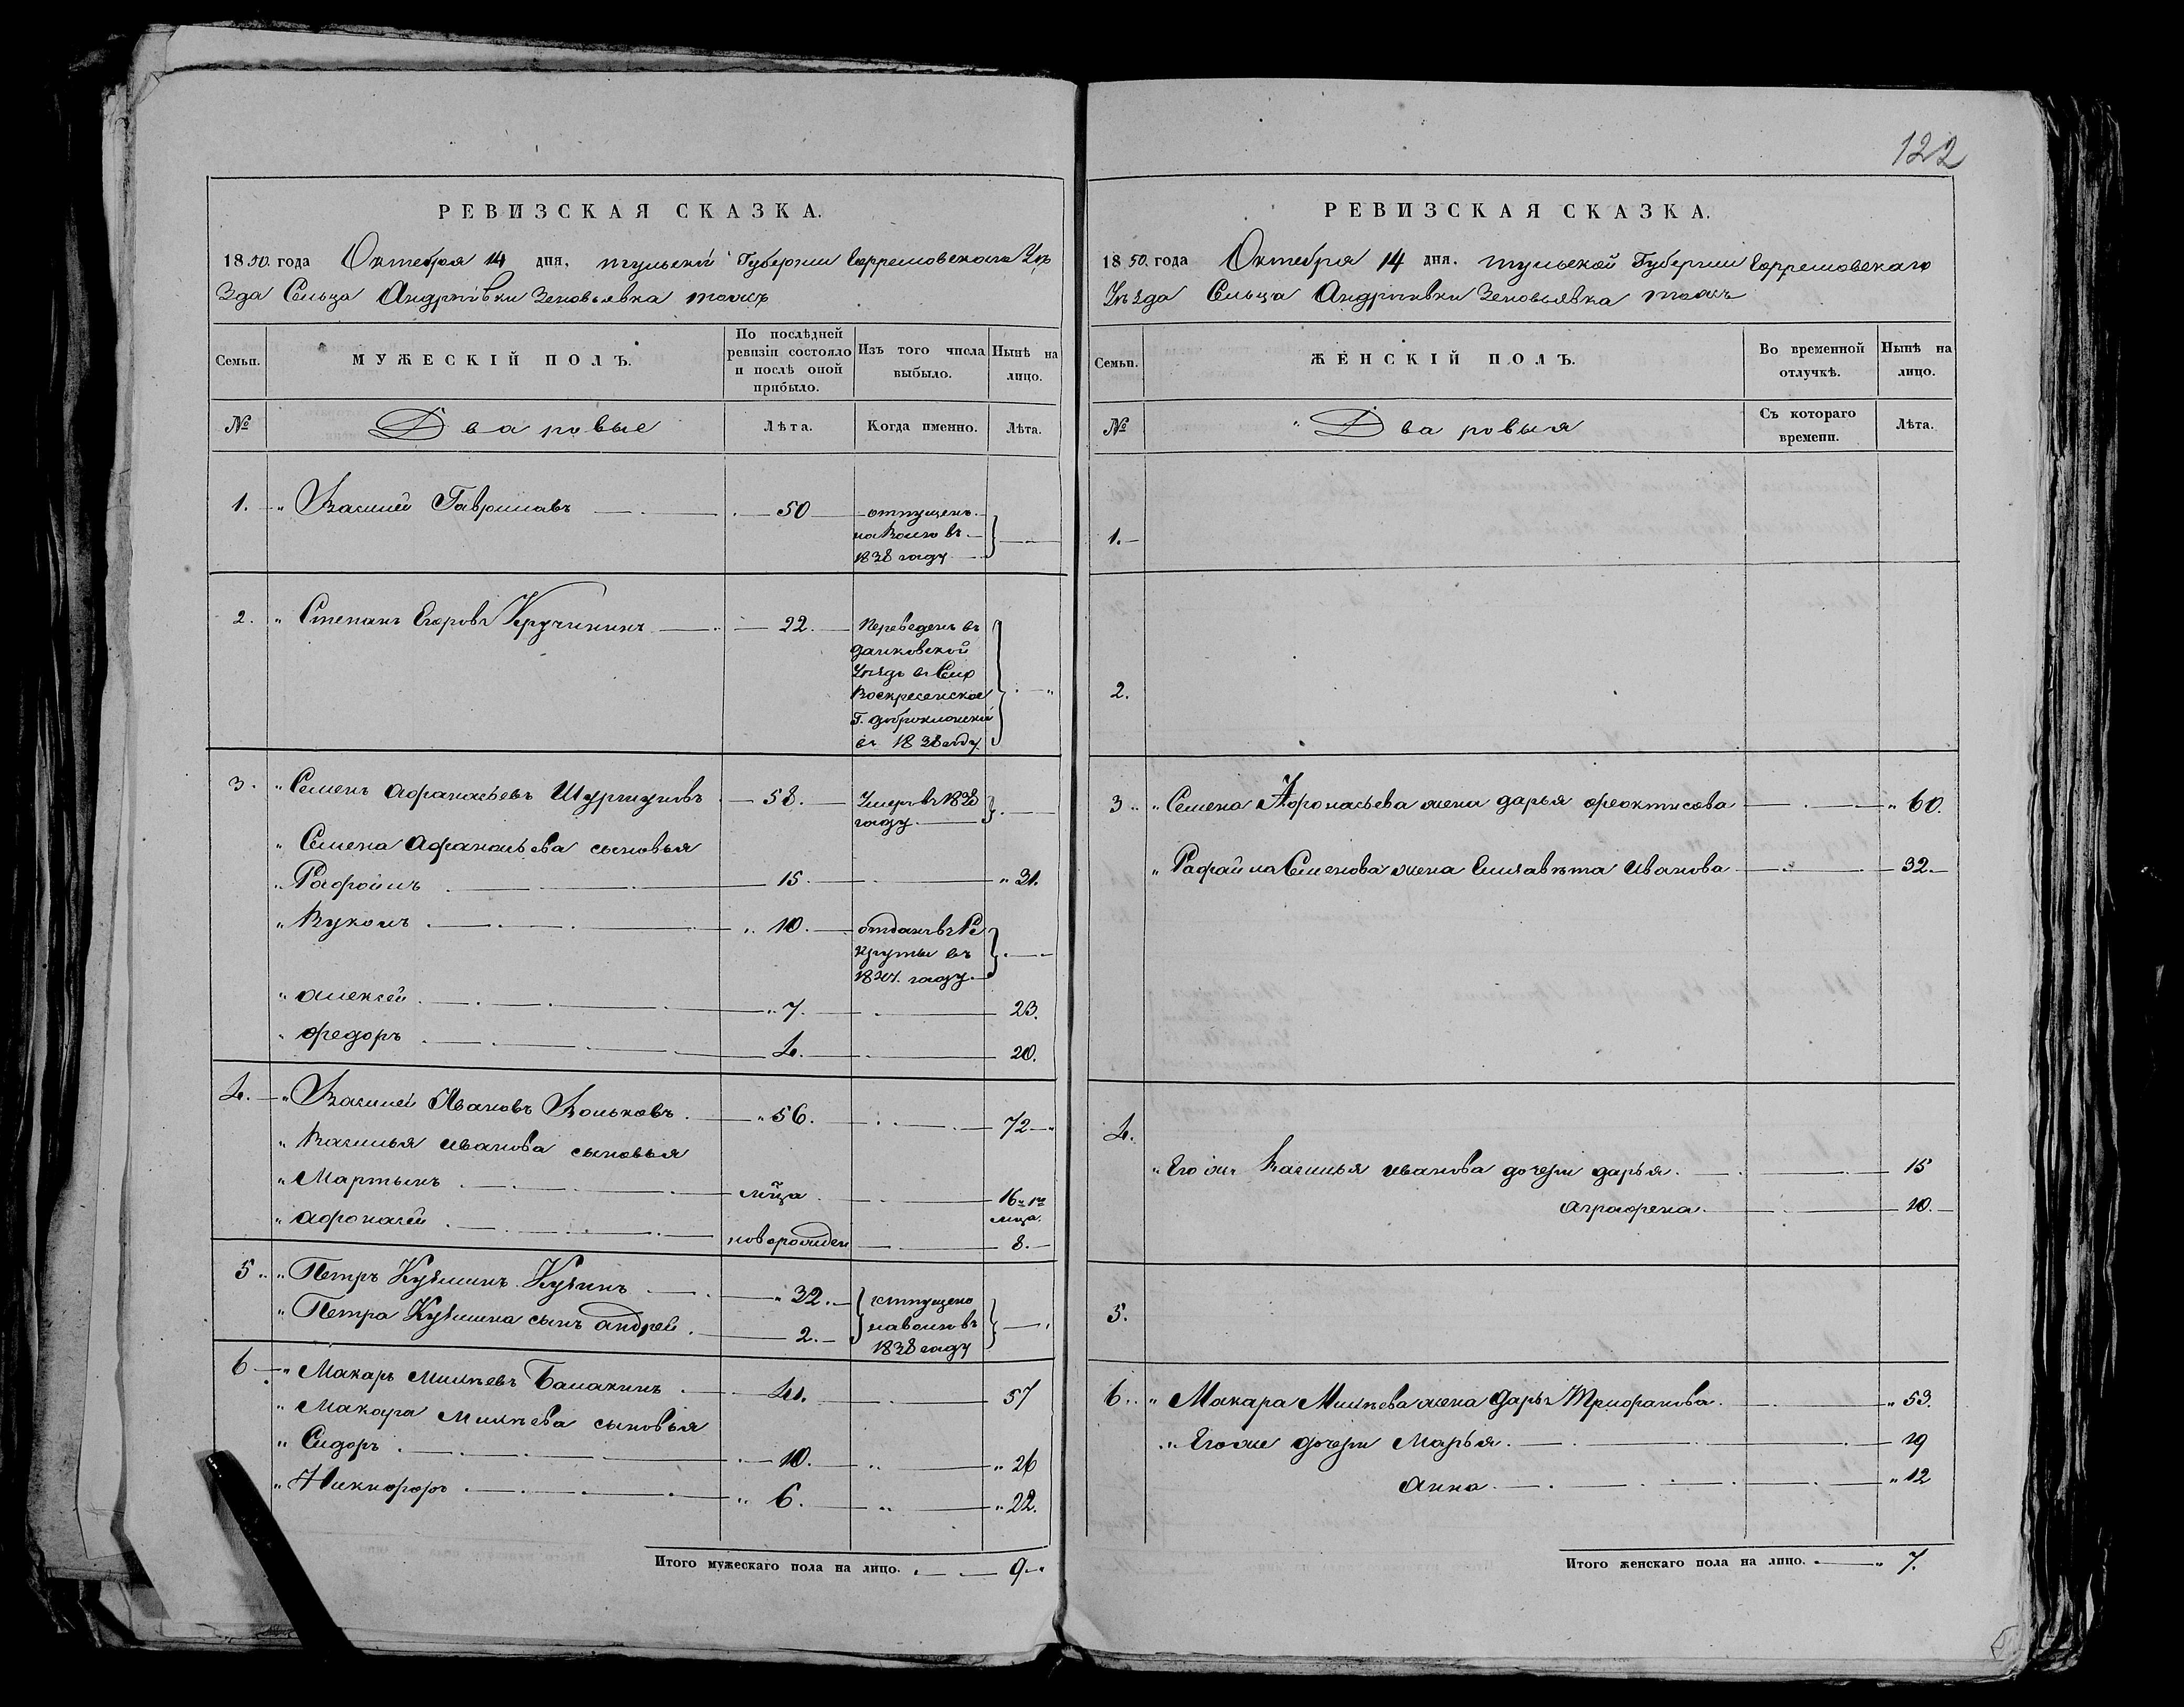 122
РЕВИЗСКАЯ СКАЗКА.
1850. года Октебря 14 дня. тульской Губернии Ефремовскаго Уѣ
Зда Сельца Андреевки Зеновьевка тожъ
Семьи.
МУЖЕСКІЙ ПОЛЪ.
По послѣдней ревизіи состояло и послѣ оной прибыло.
Изъ того числа выбыло.
Нынѣ на лицо.
№
Дваровые
Лѣта.
Когда именно.
Лѣта.
1. Василей Гавриловъ 50 отпущенъ
на волю въ
1838 году
2. Степанъ Егоровъ Кручининъ 22. Переведенъ въ
данковской
Уѣздъ въ Село
Воскресенское
въ 1838 году
3. Семенъ Афанасьевъ 58. Умеръ въ 1838
году
Семена Афанасьева сыновья
Рафоилъ 15. 31.
Вуколъ 10. отданъ въ Ре
круты въ
году
алексей 7. 23.
федоръ 4. 20.
4. Василей Ивановъ Вольковъ 56. 72
Василья иванова сыновья
Мартынъ мца 16
мца.
афонасей новорожден 8.
5. Петръ Кузминъ Кузинъ 32. отпущено
на волю въ
1838 году
Петра Кузмина сынъ андрей 2.
6. Макаръ Милѣевъ Балакинъ 41. 57
Макара Милѣева сыновья
Сидоръ 10. 26
Никифоръ 6. 22.
Итого мужескаго пола на лицо. 9
РЕВИЗСКАЯ СКАЗКА.
1850. года Октебря 14 дня. тульской Губернии Ефремовскаго
Уѣзда Сельца Андреевки Зеновьевка тожъ
Семьи.
ЖЕНСКІЙ ПОЛЪ.
Во временной отлучкѣ.
Нынѣ на лицо.
№
Дваровыя
Съ котораго времени.
Лѣта.
1.
2.
3. Семена Афонасьева жена дарья феоктисова 60.
Рафайла Семенова жена Елизавѣта Иванова 32.
4.
Василья иванова дочери дарья 15
аграфена 10.
5.
6. Макара Милѣева жена Дарья Трифанова 53.
Егоже дочери Марья 19
Анна 12
Итого женскаго пола на лицо. 7.